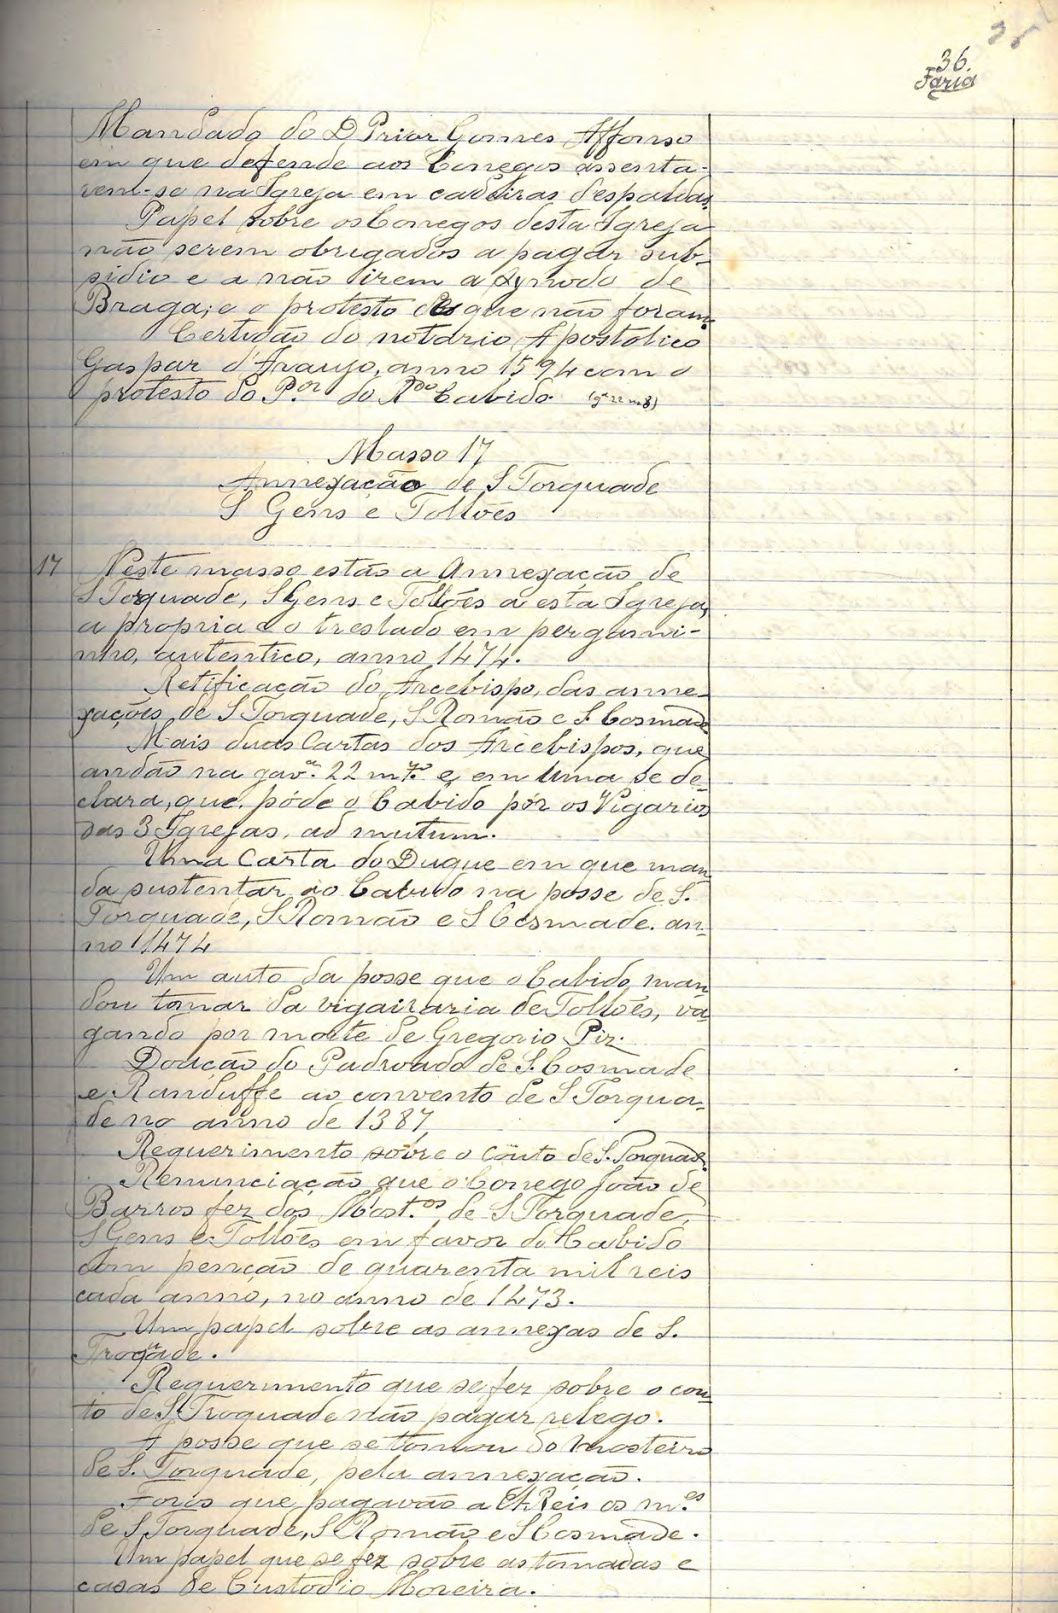 36.
Faria
Mandado do D Prior Gomes Affonso
em que defende aos Conegos assenta-
rem-se na Igreja em cadeiras despaldas
Papel sobre os Conegos desta Igreja
não serem obrigados a pagar sub-
sidio e a não irem a Synodo de
Braga; e o protesto dos que não foram.
Certidão do notario Apostolico
Gaspar d'Araujo, anno 1594 com o
protesto do P.or do R.do Cabido.
Masso 17
Annexação de S Torquade
S Gens e Tollões
17 Neste masso estão a Annexação de
S Torquade, S Gens e Tollões a esta Igreja,
a propria e o treslado em pergami-
nho, autentico, anno 1474.
Retificação do Arcebispo, das anne-
xações de S Torquade, S Romão e S. Cosmade
Mais duas Cartas dos Arcebispos, que
andão na gav.a 22 m.
 e em uma se de-
clara, que, póde o Cabido pôr os Vigarios
das 3 Igrejas, ad nutum.
Uma Carta do Duque em que man-
da sustentar ao Cabido na posse de S.
Torquade, S Romão e S Cosmade. an-
no 1474
Um auto da posse que o Cabido man-
dou tomar da vigairaria de Tollões, va-
gando por morte de Gregorio Piz.
Doação do Padroado de S. Cosmade
e Randuffe ao convento de S Torqua-
de no anno de 1387
Requerimento sobre o couto de S. Torquade.
Renunciação que o Conego João de
Barros fez dos Most.os de S Torquade,
S Gens e Tollões em favor do Cabido
com penção de quarenta mil reis
cada anno, no anno de 1473.
Um papel sobre as annexas de S.
Troq.ade.
Requerimento que se fez sobre o cou-
to de S. Troquade não pagar relego.
A posse que se tomou do mosteiro
de S. Torquade, pela annexação.
Foros que pagavão a El Reis os m.es
de S Torquade, S Romão e S Cosmade.
Um papel que se fez sobre as tomadas e
casas de Custodio Moreira.